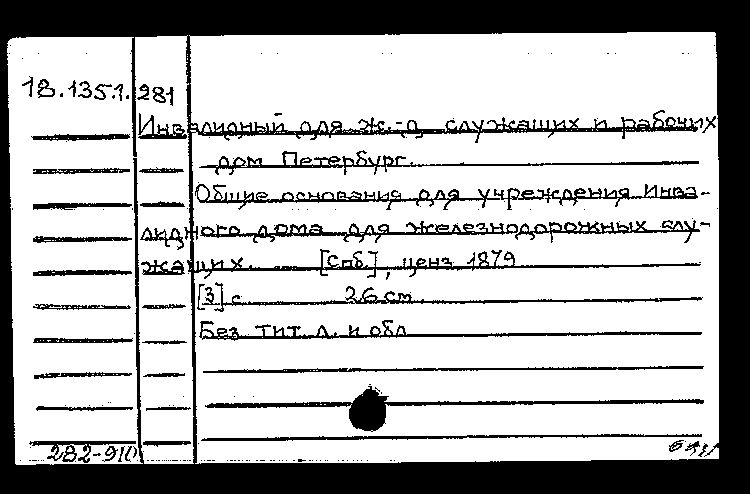 18.135.1.281
Инвалидный для ж.-д. служащих и рабочих
дом Петербург.
Общие основания для учреждения Инва-
лидного дома для железнодорожных слу-
жащих. [Спб.], ценз. 1879
[3] с. 26 см.
Без тит. л. и обл.
282-910